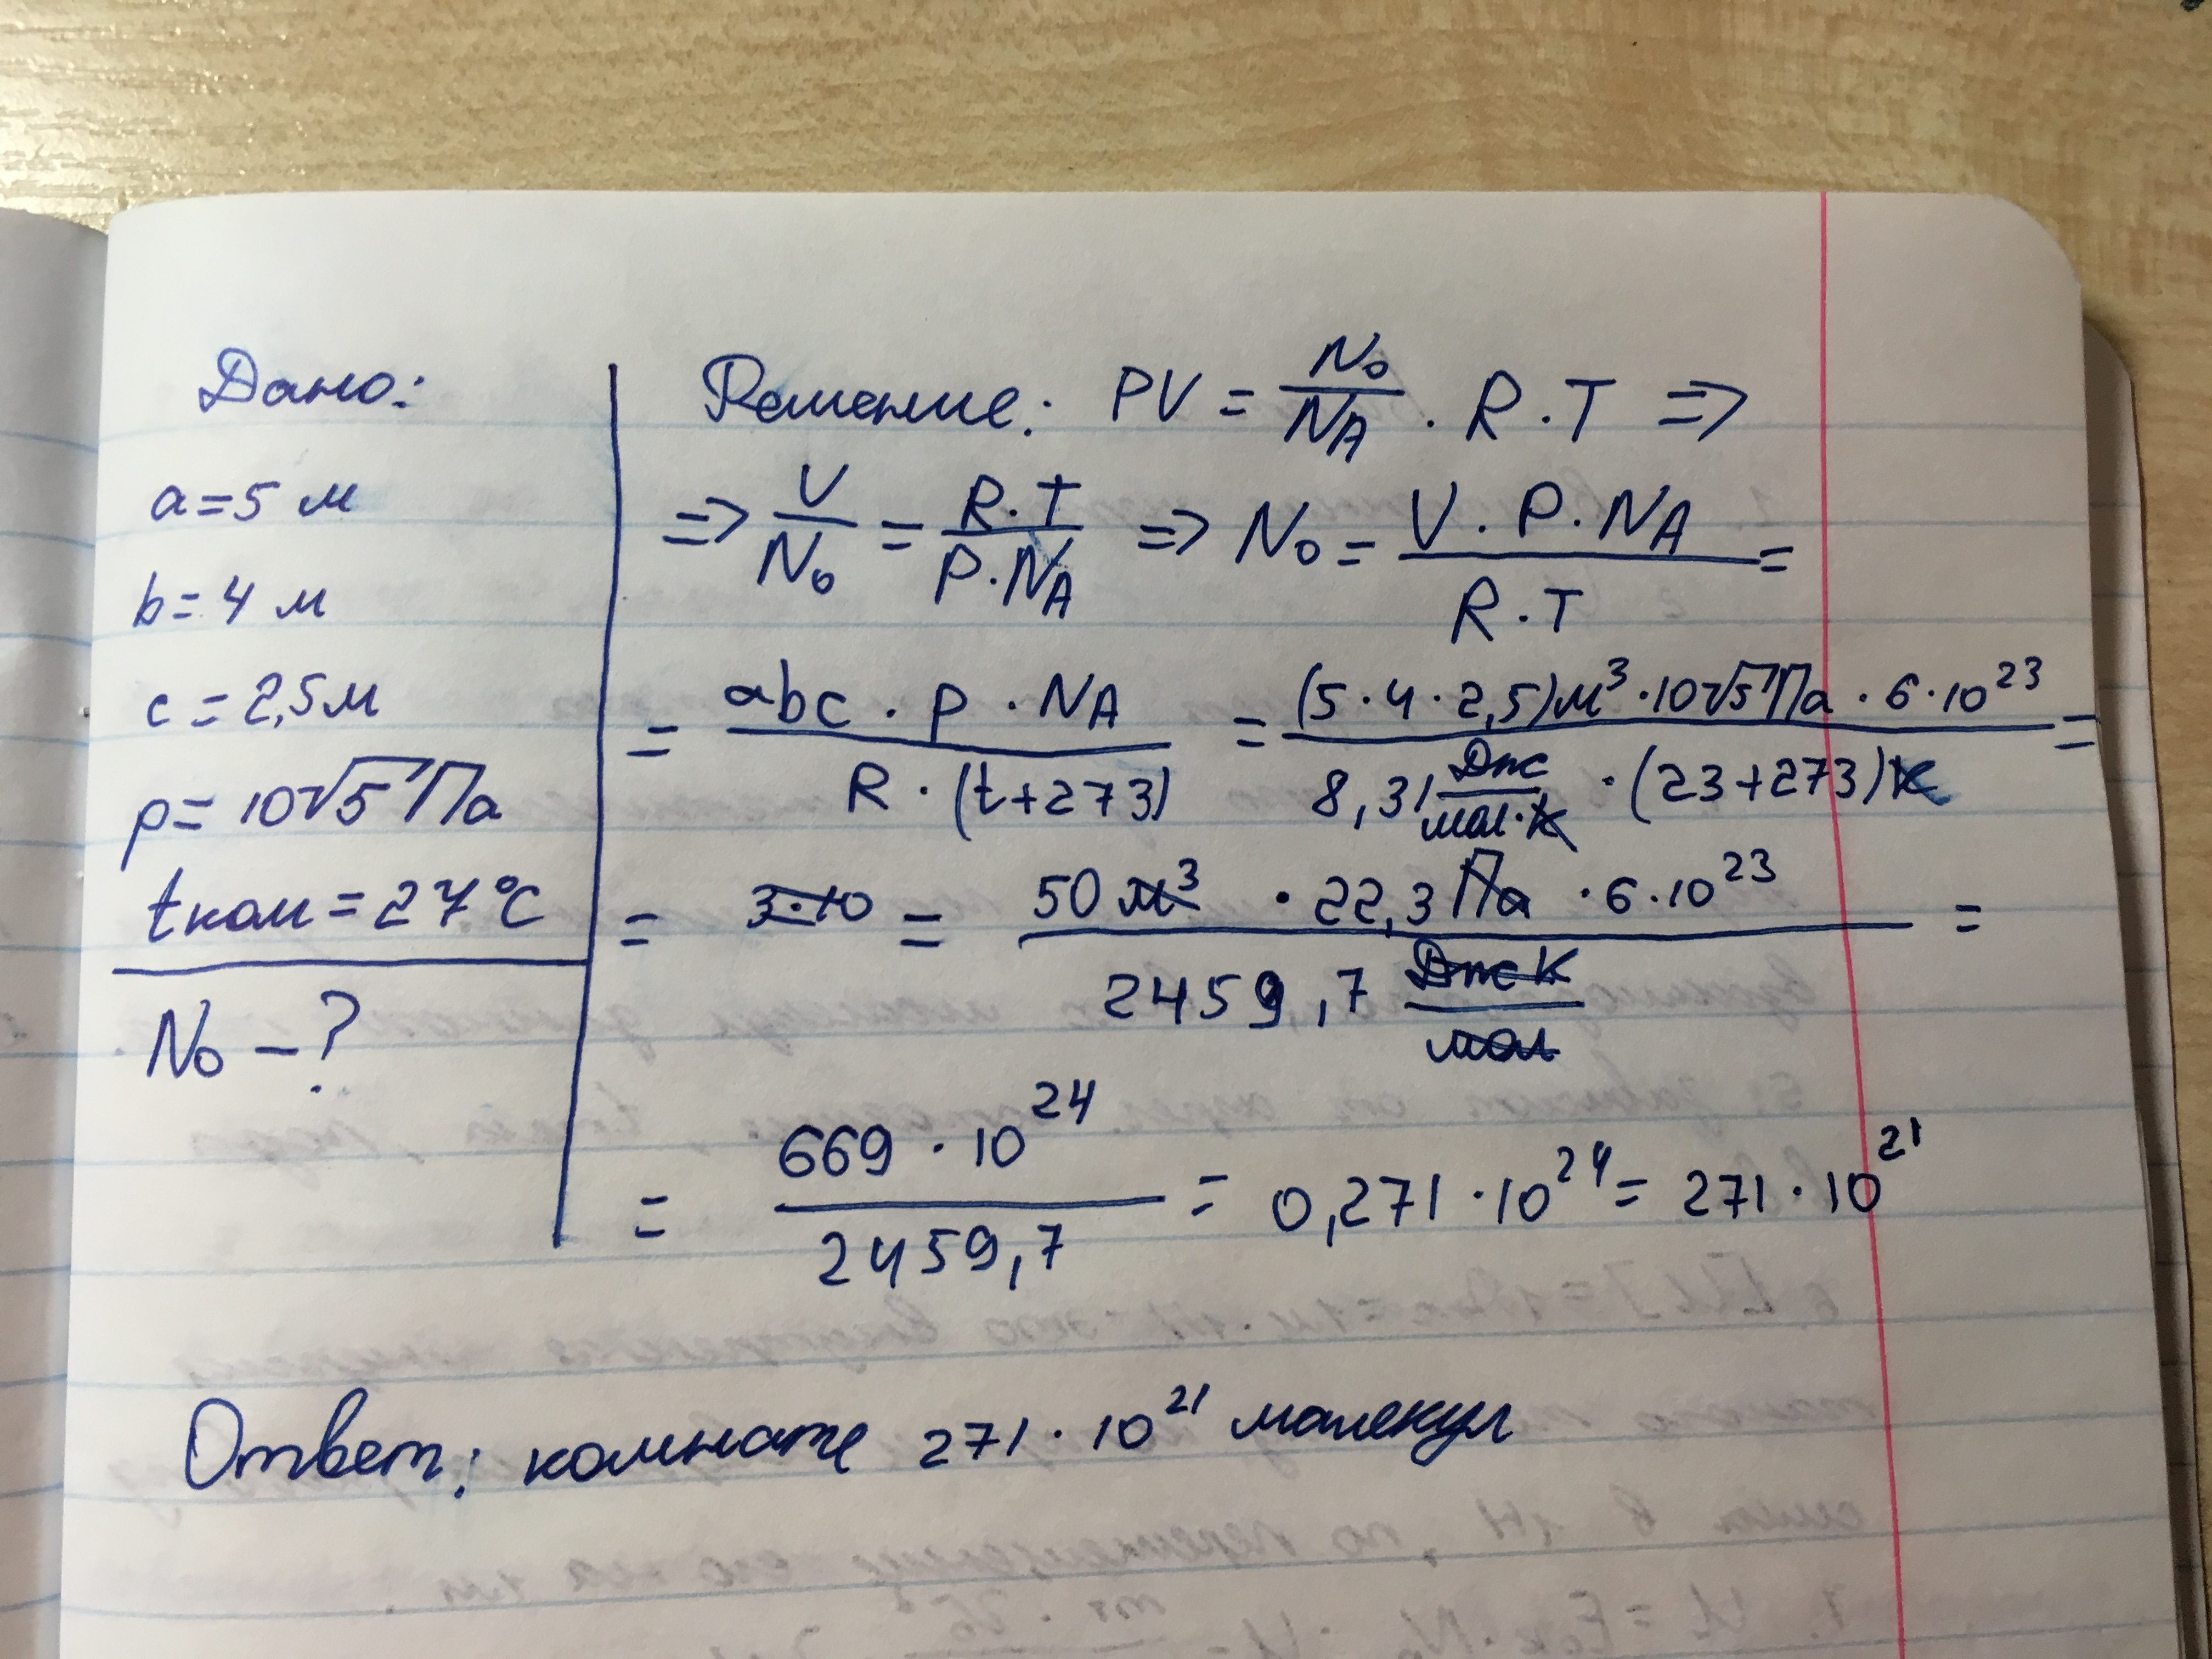 Дано:
a=5 м
b=4 м
c=2,5м
p=10√5 Па
tком=27°C
N₀ – ?
Решение: PV = N₀/NA · R · T =>
=> V/N₀ = R·T/P·NA => N₀ = V·P·NA/R·T =
= abc · P · NA/R · (t+273) = (5·4·2,5)м³·10√5 Па·6·10²³/8,31 Дж/мол·К · (23+273)К =
= 3·10 = 50 м³ · 22,3 Па · 6·10²³/2459,7 Дж К/мол =
= 669 · 10²⁴/2459,7 = 0,271·10²⁴ = 271·10²¹
Ответ: комнате 271·10²¹ малекул